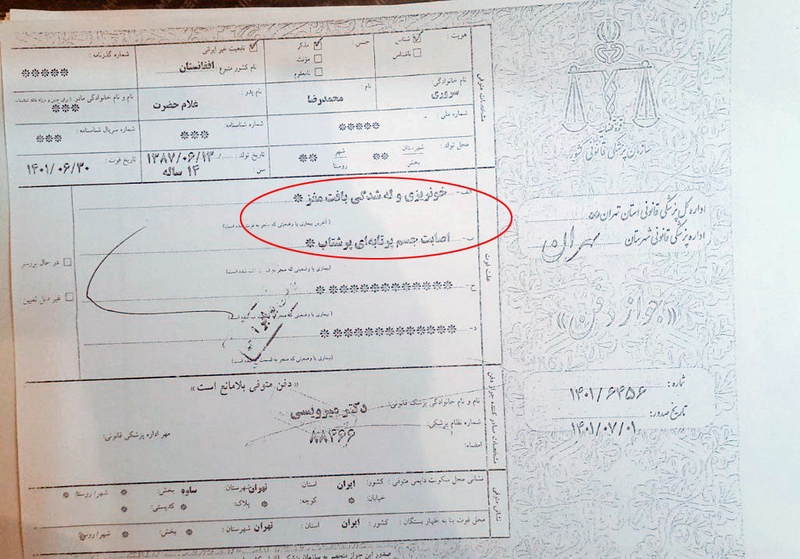 قوه قضائیه
سازمان پزشکی قانونی کشور
اداره کل پزشکی قانونی استان تهران
اداره پزشکی قانونی شهرستان تهران
«جواز دفن»
شماره : ۱۴۰۱/۶۴۵۶
تاریخ صدور: ۱۴۰۱/۰۷/۰۱
مشخصات متوفی
هویت: شناس ناشناس
جنس: مذکر مونث نامعلوم
تابعیت غیر ایرانی
نام کشور متبوع افغانستان
شماره گذرنامه : *****
نام خانوادگی سروری
نام محمدرضا
نام پدر غلام حضرت
نام و نام خانوادگی مادر ***
شماره ملی: *****
شماره شناسنامه: ***
شماره سریال شناسنامه: ***
محل تولد : شهرستان ** بخش شهر ** روستا
تاریخ تولد ۱۳۸۷/۰۶/۱۳
سن ۱۴ ساله
تاریخ فوت: ۱۴۰۱/۰۶/۳۰
علت فوت
الف- خونریزی و له شدگی بافت مغز *
(آخرین بیماری یا وضعیتی که منجر به فوت شده است)
ب- اصابت جسم پرتابه‌ای پرشتاب *
ج- *************
د- *************
در حال بررسی
غیر قابل تعیین
مشخصات صادر کننده جواز دفن
« دفن متوفی بلامانع است »
نام و نام خانوادگی پزشک قانونی: دکتر میرویسی
شماره نظام پزشکی: ۸۸۴۶۶
امضاء
مهر اداره پزشکی قانونی:
نشانی متوفی
نشانی محل سکونت دایمی متوفی : کشور: ایران استان: تهران شهرستان: ساوه بخش: * شهر/ روستا: *
خیابان: * کوچه: * پلاک: * کدپستی: *
محل فوت بنا به اظهار بستگان : کشور : ایران استان: تهران شهرستان : * بخش : * شهر/ روستا *